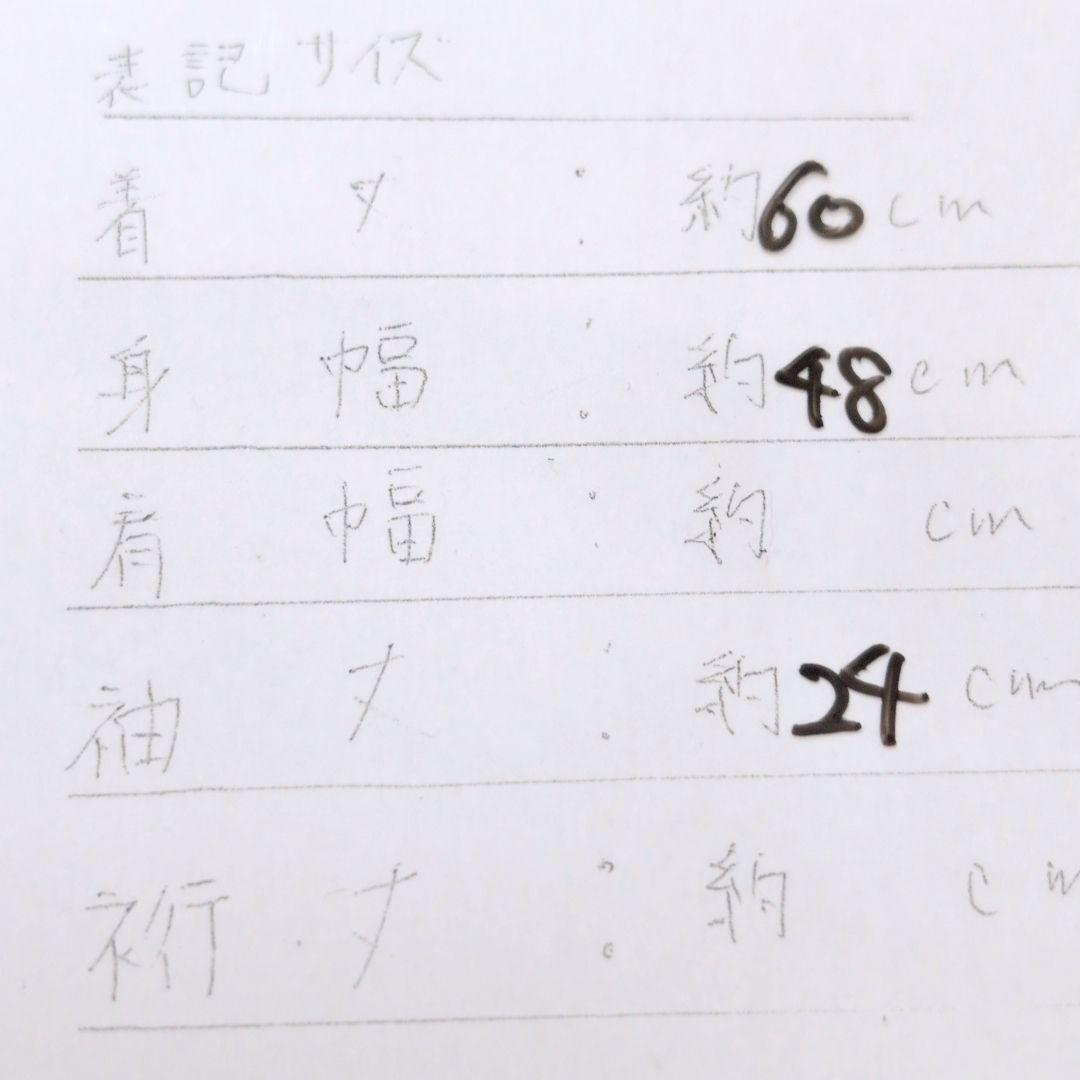 表記サイズ
着丈:約60cm
身幅:約48cm
肩幅:約 cm
袖丈:約24cm
裄丈:約 cm